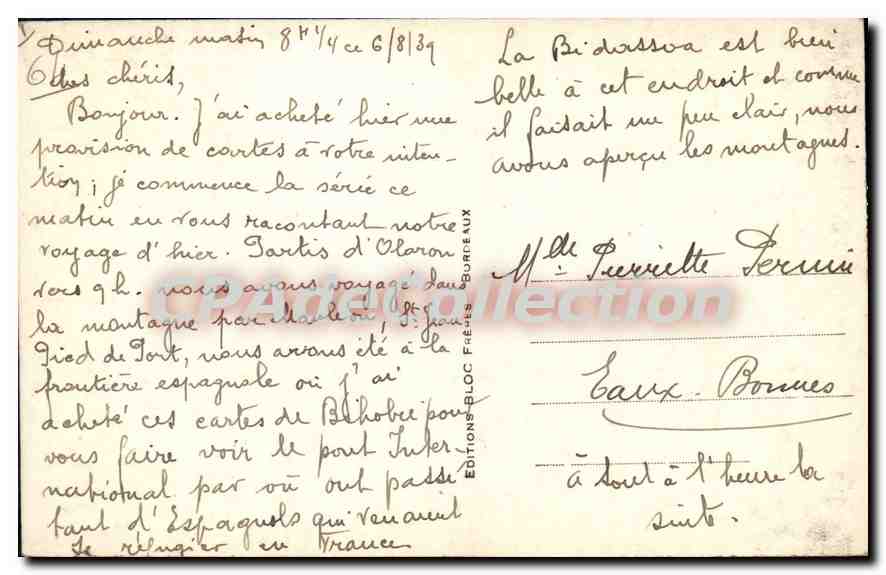 1) Dimanche matin 8h 1/4 ce 6/8/39
6 des chéris,
Bonjour. J'ai acheté hier une
provision de cartes à votre inten-
tion ; je commence la série ce
matin en vous racontant notre
voyage d'hier. Partis d'Oloron
vers 9h. nous avons voyagé dans
la montagne par Mauléon, St. Jean
Pied de Port, nous avons été à la
frontière espagnole où j'ai
acheté ces cartes de Béhobie pour
vous faire voir le pont Inter-
national par où ont passé
tant d'Espagnols qui venaient
se réfugier en France
EDITIONS BLOC FRÈRES BORDEAUX
La Bidassoa est bien
belle à cet endroit et comme
il faisait un peu clair, nous
avons aperçu les montagnes.
Mlle Pierrette
Eaux-Bonnes
à tout à l'heure la
suite.
CPAdeCollection